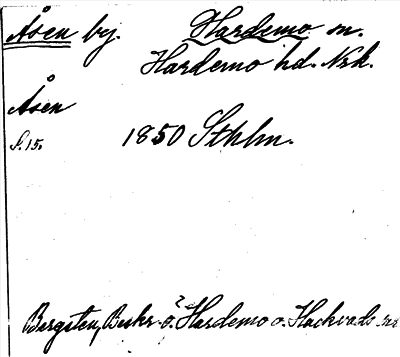 Åsen by. Hardemo sn.
Hardemo hd. Nrk.
Åsen
S. 15. 1850 Sthlm.
Bergsten, Beskr. ö. Hardemo o. Hackvads snr